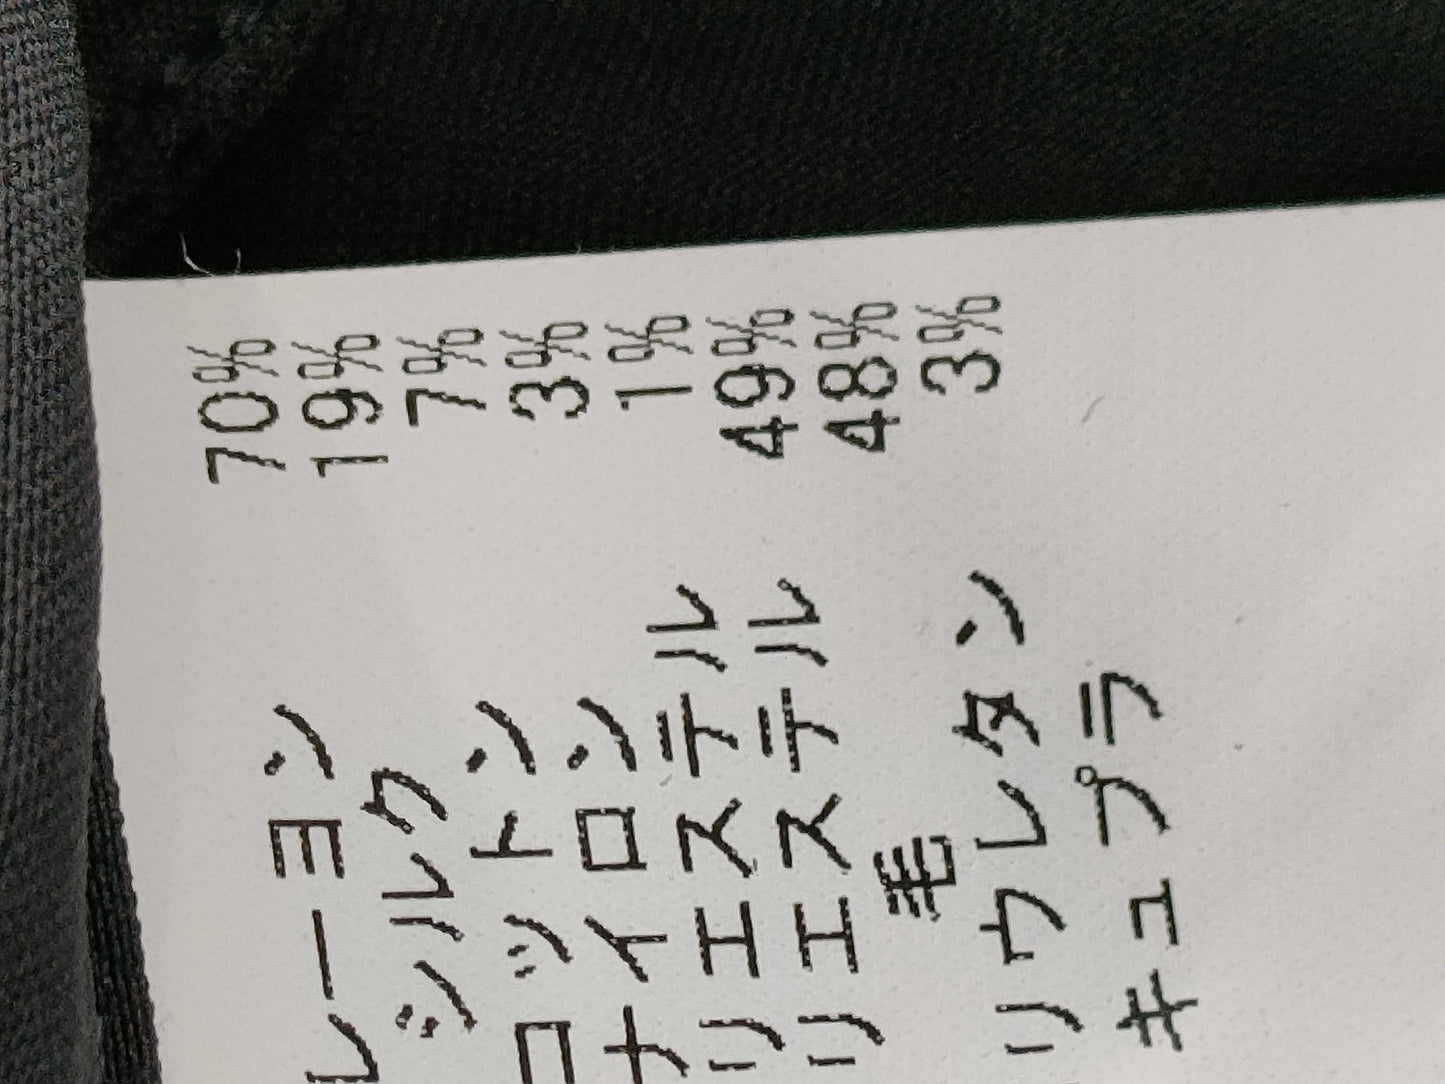 レーヨン 70%
シルク 19%
コットン 7%
ナイロン 3%
リエステル 1%
リエステル 49%
毛 48%
リウレタン 3%
キュプラ